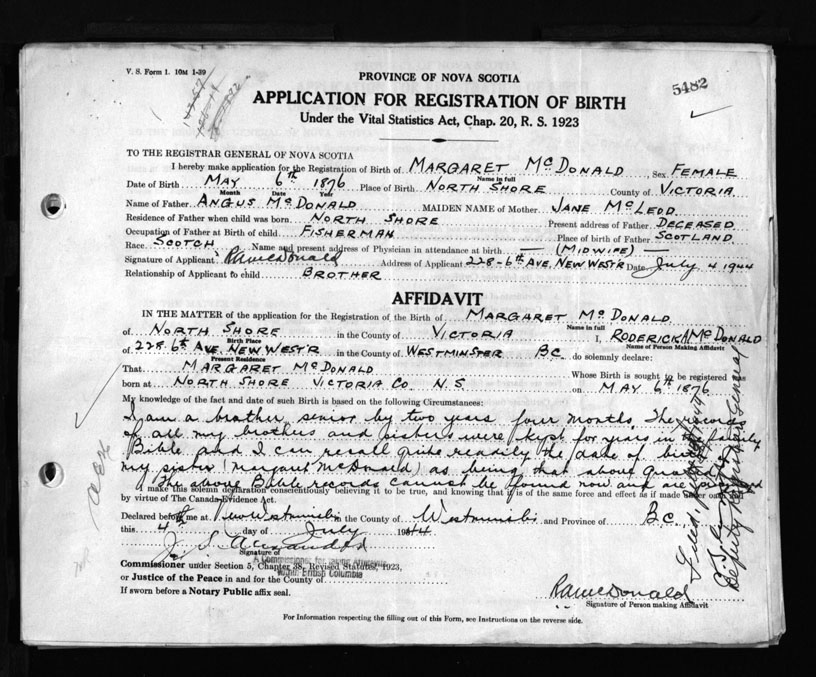 V. S. Form 1. 10M 1-39
5482
PROVINCE OF NOVA SCOTIA
APPLICATION FOR REGISTRATION OF BIRTH
Under the Vital Statistics Act, Chap. 20, R. S. 1923
TO THE REGISTRAR GENERAL OF NOVA SCOTIA
I hereby make application for the Registration of Birth of MARGARET McDONALD Sex FEMALE
Name in full
Date of Birth MAY 6th 1876 Place of Birth NORTH SHORE County of VICTORIA
Month Date Year
Name of Father ANGUS McDONALD MAIDEN NAME of Mother JANE McLEOD
Residence of Father when child was born NORTH SHORE Present address of Father DECEASED
Occupation of Father at Birth of child FISHERMAN Place of birth of Father SCOTLAND
Race SCOTCH Name and present address of Physician in attendance at birth — (MIDWIFE) —
Signature of Applicant RAMcDonald Address of Applicant 228-6th AVE, NEW WEST'R Date July 4 1944
Relationship of Applicant to child BROTHER
AFFIDAVIT
IN THE MATTER of the application for the Registration of the Birth of MARGARET McDONALD
Name in full
of NORTH SHORE in the County of VICTORIA I, RODERICK A. McDONALD
Birth Place Name of Person Making Affidavit
of 228 6th AVE. NEW WEST'R in the County of WESTMINSTER BC. do solemnly declare:
Present Residence
That MARGARET McDONALD Whose Birth is sought to be registered was
born at NORTH SHORE VICTORIA CO. N.S. on MAY 6th 1876
My knowledge of the fact and date of such Birth is based on the following Circumstances:
I am a brother, senior by two years four months. The records
of all my brothers and sisters were kept for years in the family
Bible and I can recall quite readily the date of birth
my sister (Margaret McDonald) as being that above
The above Bible records cannot be found now and are
I make this solemn declaration conscientiously believing it to be true, and knowing that it is of the same force and effect as if made under oath
by virtue of The Canada Evidence Act.
Declared before me at New Westminster in the County of Westminster and Province of B.C.
this 4th day of July 1944
Signature of
A Commissioner for taking Affidavits
within British Columbia
Commissioner under Section 5, Chapter 38, Revised Statutes, 1923,
or Justice of the Peace in and for the County of
If sworn before a Notary Public affix seal.
RAMcDonald
Signature of Person making Affidavit
For Information respecting the filling out of this Form, see Instructions on the reverse side.
Deputy Registrar General